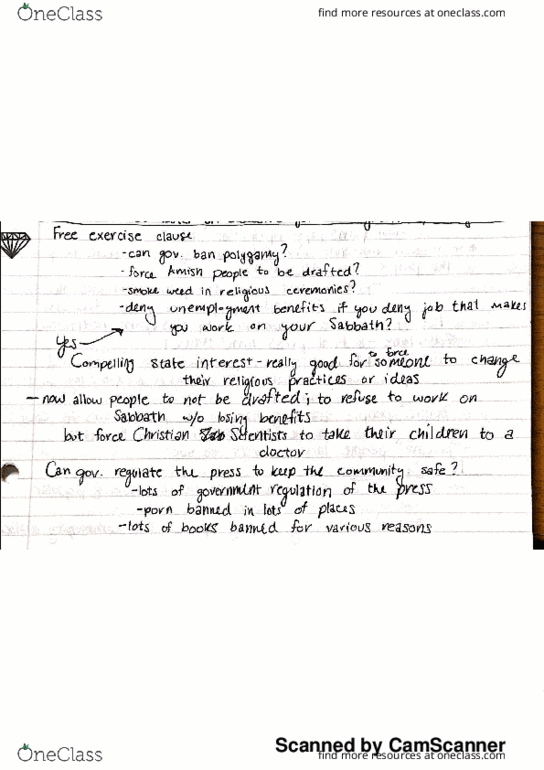 OneClass
find more resources at oneclass.com
Free exercise clause
-can gov. ban polygamy?
-force Amish people to be drafted?
-smoke weed in religious ceremonies?
-deny unemployment benefits if you deny job that makes
you work on your Sabbath?
yes
to force
Compelling state interest - really good for someone to change
their religious practices or ideas
-now allow people to not be drafted; to refuse to work on
Sabbath w/o losing benefits
but force Christian Scientists to take their children to a
doctor
Can gov. regulate the press to keep the community safe?
-lots of government regulation of the press
-porn banned in lots of places
-lots of books banned for various reasons
Scanned by CamScanner
OneClass
find more resources at oneclass.com